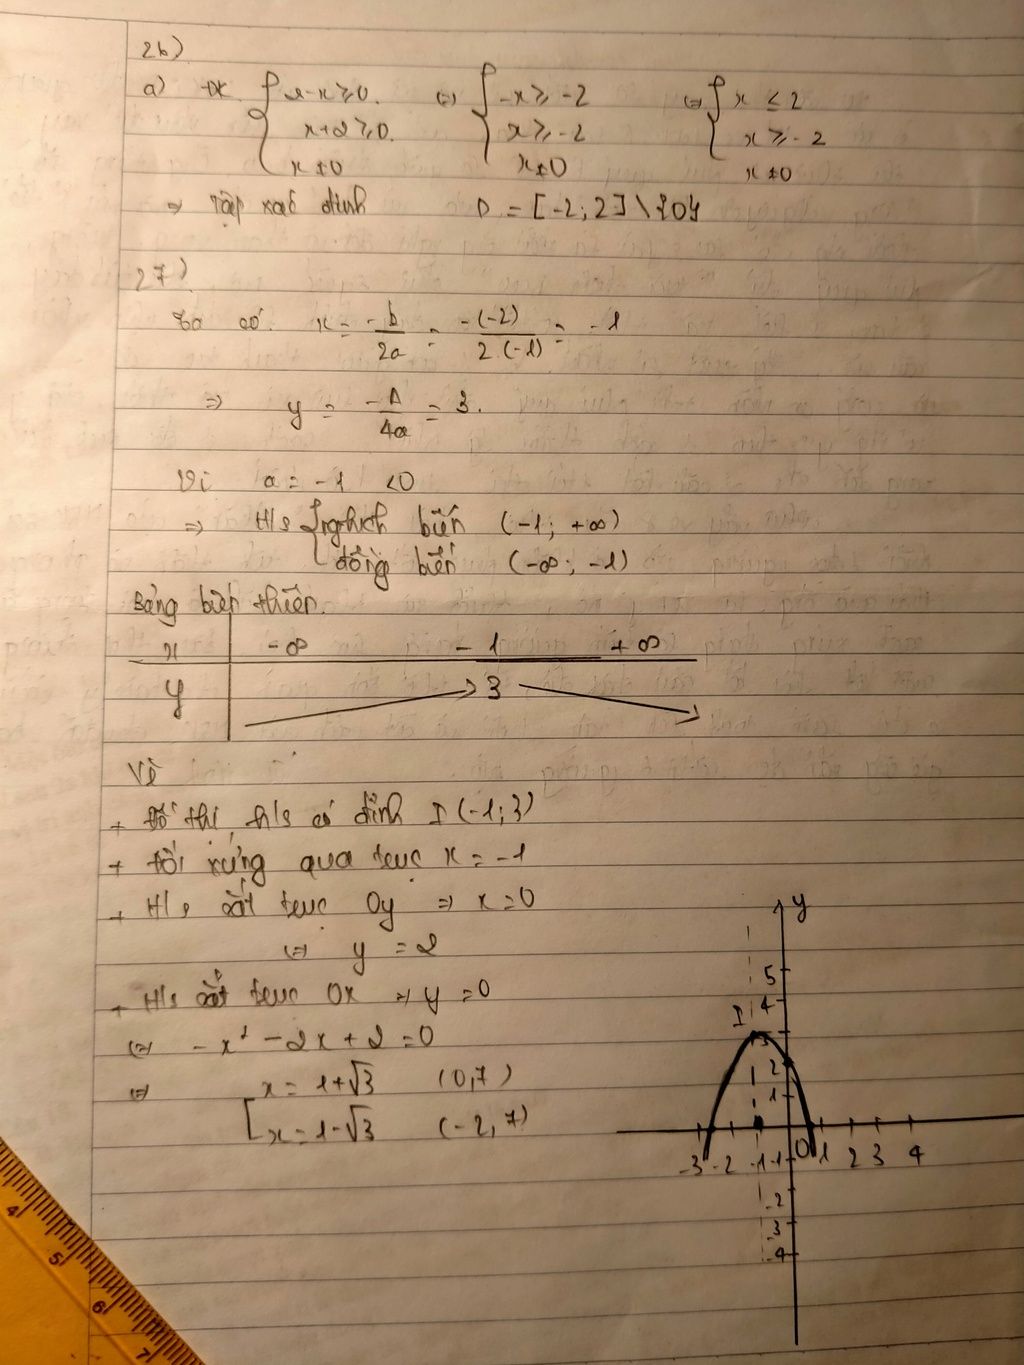 26)
a) ĐK { 2-x ≥ 0. (=) { -x ≥ -2 (=) { x ≤ 2
x+2 ≥ 0. x ≥ -2 x ≥ -2
x ≠ 0 x ≠ 0 x ≠ 0
=> Tập xác định D = [-2; 2] \ {0}
27)
Ta có x = -b/2a = -(-2)/2.(-1) = -1
=> y = -Δ/4a = 3.
Vì a = -1 < 0
=> H/s { nghịch biến (-1; +∞)
đồng biến (-∞; -1)
Bảng biến thiên.
x -∞ -1 +∞
y 3
Vẽ
+ Đồ thị h/s có đỉnh I (-1; 3)
+ Đối xứng qua trục x = -1
+ H/s cắt trục Oy => x = 0
(=) y = 2
+ H/s cắt trục Ox => y = 0
(=) -x² - 2x + 2 = 0
(=) [ x = 1+√3 (0,7)
x = 1-√3 (-2,7)
y
5
4
I
3
2
1
-3 -2 -1 -1 O 1 2 3 4
-2
-3
-4
4
5
6
7